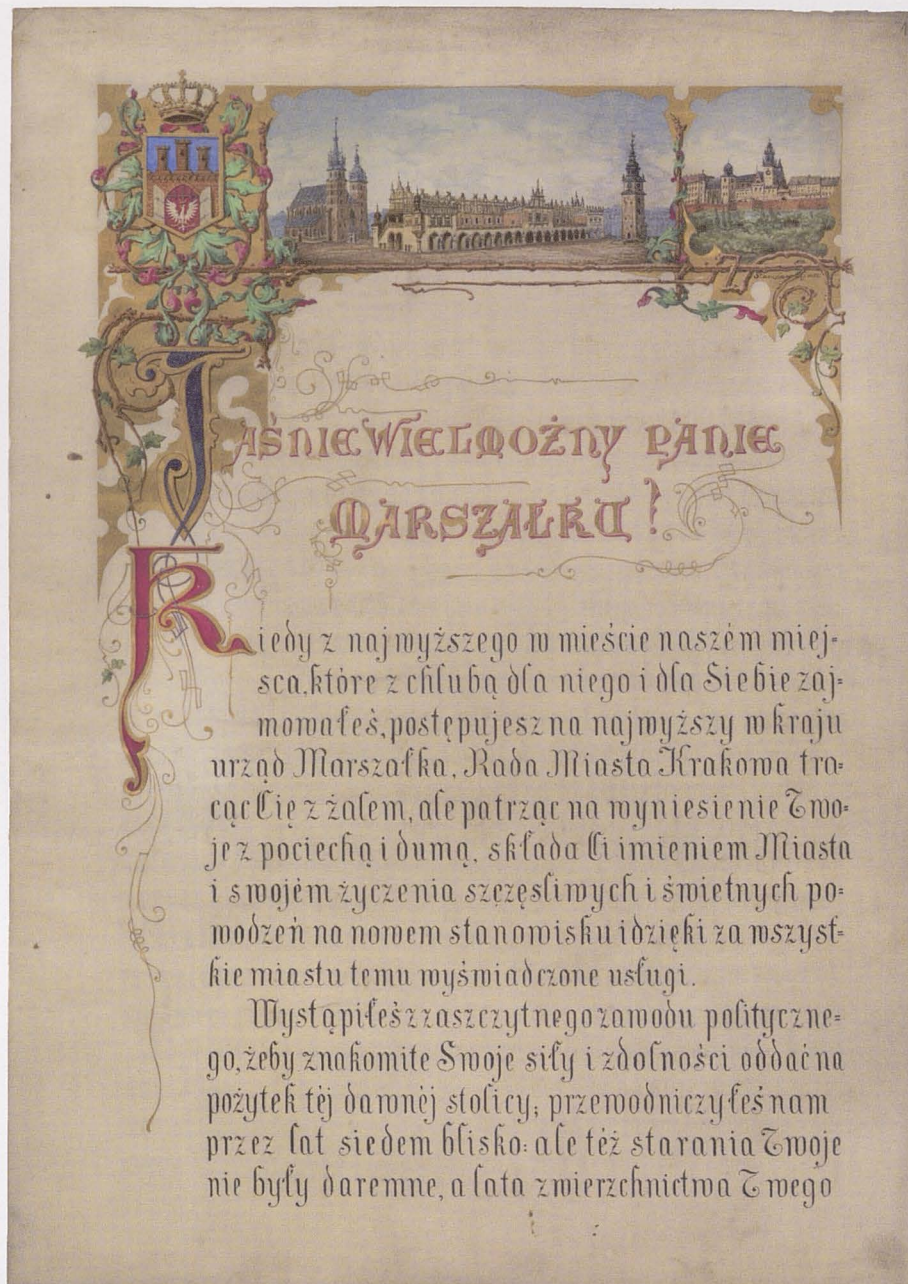 JAŚNIE WIELMOŻNY PANIE
MARSZAŁKU!
Kiedy z najwyższego w mieście naszém miej-
sca, które z chlubą dla niego i dla Siebie zaj-
mowałeś, postępujesz na najwyższy w kraju
urząd Marszałka, Rada Miasta Krakowa tra-
cąc Cię z żalem, ale patrząc na wyniesienie Two-
je z pociechą i dumą, składa Ci imieniem Miasta
i swojém życzenia szczęsliwych i świetnych po-
wodzeń na nowem stanowisku i dzięki za wszyst-
kie miastu temu wyświadczone usługi.
Wystąpiłeś z zaszczytnego zawodu polityczne-
go, żeby znakomite Swoje siły i zdolności oddać na
pożytek téj dawnéj stolicy; przewodniczyłeś nam
przez lat siedem blisko: ale téż starania Twoje
nie były daremne, a lata zwierzchnictwa Twego